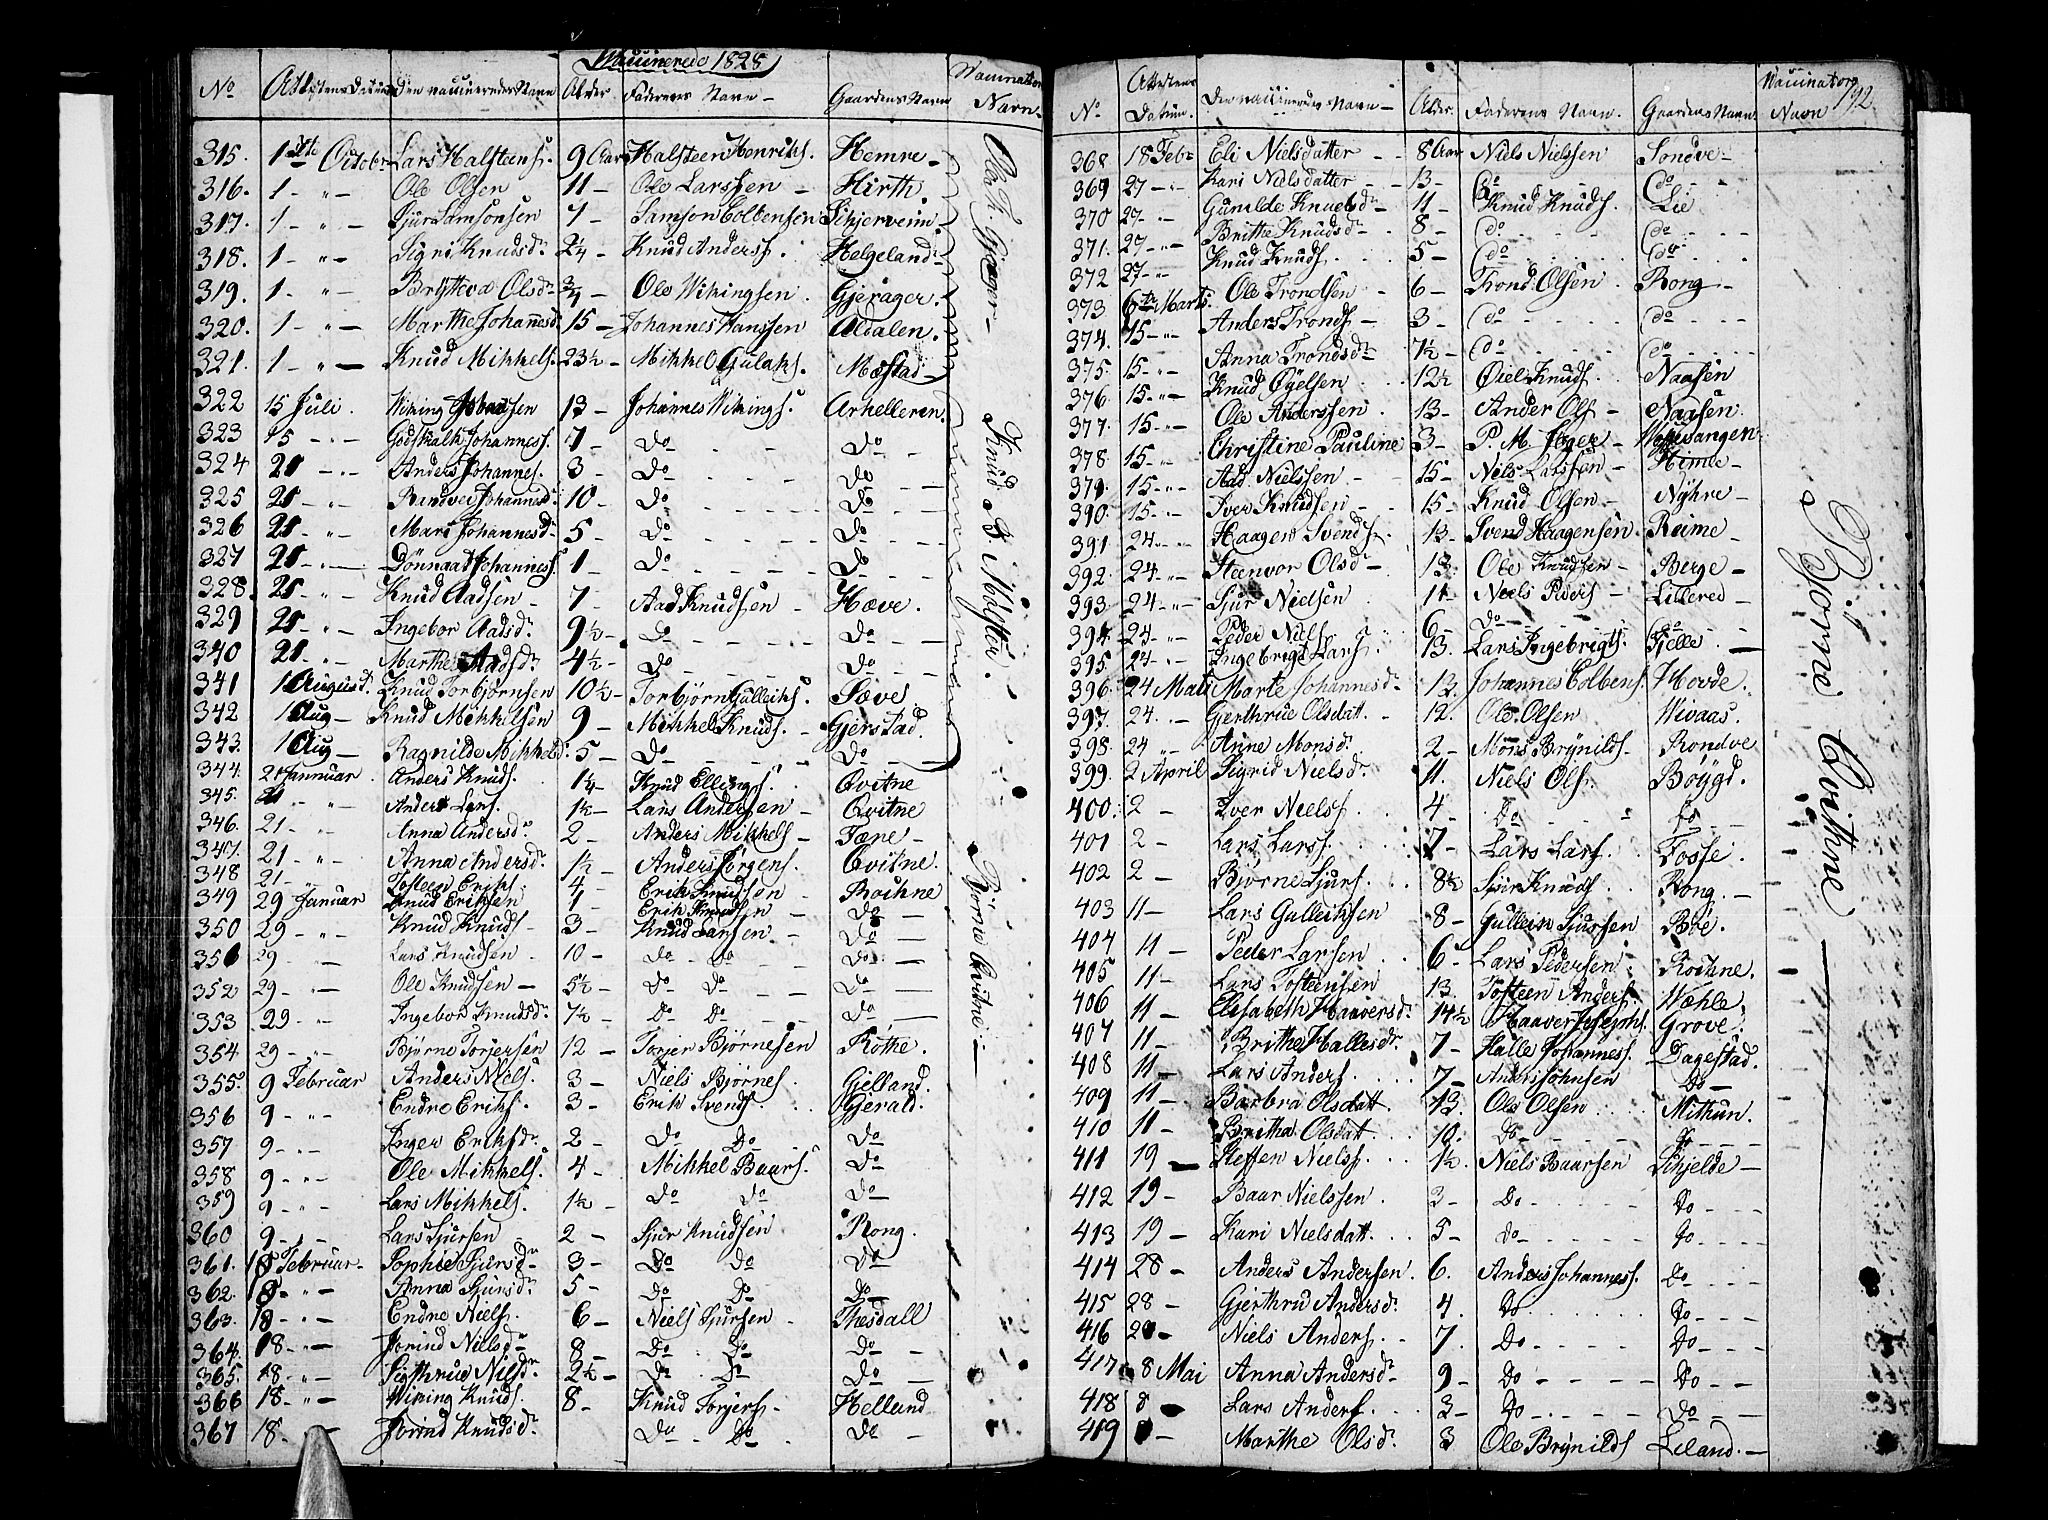 Vaccinerede 1828
No Attestens Datum Den vaccineredes Navn Alder Faderens Navn Gaardens Navn Vaccinators Navn
315. 1ste Octobr Lars Halsteens. 9 Aar Halsteen Henriks. Hemre
316. 1 Ole Olsen 11 Ole Larssen Hirth
317. 1 Sjur Samsonsen 7 Samson Colbensen Schjerveim
318. 1 Sigri Knudsdr 2¼ Knud Anders. Helgeland
319. 1 Bryttva Olsdr ¾ Ole Wikingsen Gjerager.
320. 1 Marthe Johannesd. 15 Johannes Hanssen Aldalen.
321. 1 Knud Mikkels. 23½ Mikkel Gulaks. Mæstad
322 15 Juli. Wiking Johansen 13 Johannes Wikings. Arhelleren
323 15 Godskalk Johannes. 7 Do Do
324 21 Anders Johannes. 3 Do Do
325 21 Randvei Johannesd. 10 Do Do
326 21 Mari Johannesd. 5 Do Do
327 21 Johannes. 1 Do Do
328. 21 Knud Aadsen 7 Aad Knudsen Hæve.
329 21 Ingebor Aadsdr 9½ Do Do
340 21 Marthe Aadsdr 4½ Do Do
341 1 August. Knud Torbjørnsen 10½ Torbjørn Gulleiks. Sæve
342 1 Aug Knud Mikkelsen 9 Mikkel Knuds. Gjerstad.
343. 1 Aug Ragnilde Mikkelsd: 5 Do Do
344. 21 Jannuar Anders Knuds. 1¼ Knud Ellings. Qvitne
345. 21 Anders Lars. 1½ Lars Andersen Qvitne
346. 21 Anna Andersdr 2 Anders Mikkels Tæne
347. 21 Anna Andersdr 1½ Anders Jørgens. Qvitne.
348 21 Tosteen Eriks. 4 Erik Knudsen Rochne
349 29 Januar Knud Eriksen 1 Erik Knudsen Do
350 29 Knud Knuds 3 Knud Larsen Do
351 29 Lars Knudsen 10 Do Do Do
352 29 Ole Knudsen 5½ Do Do Do
353 29 Ingebor Knudsdr 7½ Do Do Do
354. 29 Bjørne Torjersen 12 Torjer Bjørnesen Røthe.
355. 9 Februar Anders Niels. 3 Niels Bjørnes. Gjelland.
356 9 Endre Eriks. 3 Erik Svends. Gjerald.
357 9 Inger Eriksdr 2 Do Do Do
358 9 Ole Mikkels. 4 Mikkel Baars. Do
359 9 Lars Mikkels. 1½ Do Do Do
360 9 Lars Sjursen 2 Sjur Knudsen Rong.
361. 18 Februar Sophie Sjursdr 3 Do Do Do
362. 18 Anna Sjursdr 5 Do Do Do
363. 18 Endre Niels. 6 Niels Sjursen Thesdall
364. 18 Jorind Nielsdr 8 Do Do Do
365. 18 Gjerthrud Nilsdr 2½ Do Do Do
366 18 Wiking Knuds. 8 Knud Torjers. Helland
367 18 Jorind Knudsdr Do Do Do
Ole Th. Gjerager
Knud B. Mølster.
Bjørne Qvitne
192.
No Attestens Datum. Den vaccineredes Navn Alder. Faderens Navn. Gaardens Navn. Vaccinators Navn
368 18 Febr Eli Nielsdatter 8 Aar Niels Nielssen Sondve
369 27 Kari Nielsdatter 13 Do Do
370 27 Gunilde Knudsdr 11 Knud Knuds. Lie
371. 27 Brithe Knudsdr 8 Do Do
372 27 Knud Knuds. 5 Do Do
373 6te Marts. Ole Trondsen 6 Trond Olsen Rong
374. 15 Anders Tronds. 3 Do Do
375. 15 Anna Trondsdr 7½ Do Do
376. 15 Knud Øyelsen 12½ Øiel Knuds. Naasen
377. 15 Ole Anderssen 13 Ander Ols. Naasen.
378. 15 Christine Pauline 3 P. M. Jæger Wossevangen
379. 15 Aad Nielssen 15 Nils Larssen Himle
390. 15 Iver Knudsen 15 Knud Olsen Nyhre
391 24 Haagen Svends. 13 Svend Haagensen Reime
392. 24 Steenvor Olsdr 13. Ole Knudsen Berge
393. 24 Sjur Nielsen 11 Neels Peders. Lillered
394. 24 Peder Niels. 6 Do Do
395 24 Ingebrigt Lars. 13. Lars Ingebrigts. Fjelle.
396. 24 Mats Marte Johannesdr 13. Johannes Colbens. Hovde.
397. 24 Gerthrue Olsdatt. 12. Ole Olsen Wivaas.
398. 24 Anne Monsdr 2 Mons Brynilds. Rondve
399. 2 April Sigrid Nielsdr 11. Niels Ols. Bøygd.
400. 2 Iver Niels. 4 Do Do
401 2 Lars Lars. 7 Lars Lars. Fosse.
402 2 Bjørne Sjurs. 8½ Sjur Knuds Rong.
403 11 Lars Gulleiksen 8 Gulleik Sjursen Bøe.
404 11 Peder Larsen 6 Lars Pedersen Rochne.
405 11 Lars Tosteensen 13. Tosteen Anders. Wæhle.
406 11 Elisabeth Haaversdr 14½ Haaver Josephs. Grove.
407 11 Brithe Hallesdr 7 Halle Johannes. Dagestad.
408 11 Lars Anders. 7 Anders Johnsen Do
409 11 Barbra Olsdatt. 13. Ole Olsen Mithun.
410 11 Britha Olsdatt. 10. Do Do
411 19 Steffen Niels. 1½. Niels Baarsen Schjelde
412 19 Baar Nielssen 3 Do Do
413 19 Kari Nielsdatt. 5 Do Do
414 28 Anders Andersen. 6. Anders Johannes. Do
415 28 Gjerthru Andersdr 4. Do Do
416 28 Niels Anders. 7. Do Do
417 8 Mai Anna Andersdr 9 Do Do
418 8 Lars Anders. 3 Do Do
419 8 Marthe Olsdr 3 Ole Brynilds Leland.
Bjørne Qvithne